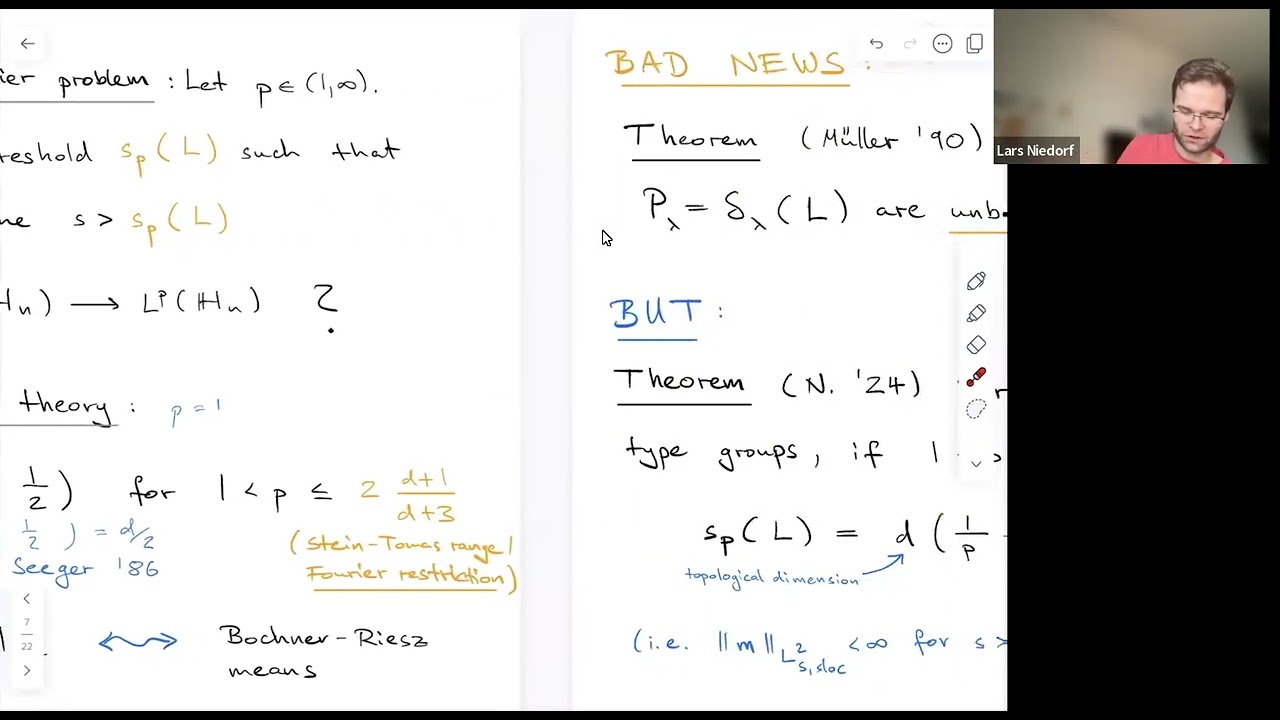 ier problem : Let p ∈ (1,∞).
reshold s_p(L) such that
ne s > s_p(L)
H_n) → L^p(H_n) ?
theory : p = 1
1/2) for 1 < p ≤ 2 (d+1)/(d+3)
1/2 ) = d/2
Seeger '86
(Stein-Tomas range/
Fourier restriction)
Bochner-Riesz
means
7
22
BAD NEWS :
Theorem (Müller '90)
P_λ = δ_λ(L) are unb
BUT :
Theorem (N. '24)
type groups, if 1
s_p(L) = d (1/p
topological dimension
(i.e. ‖m‖_{L^2_{s,sloc}} < ∞ for s >
Lars Niedorf